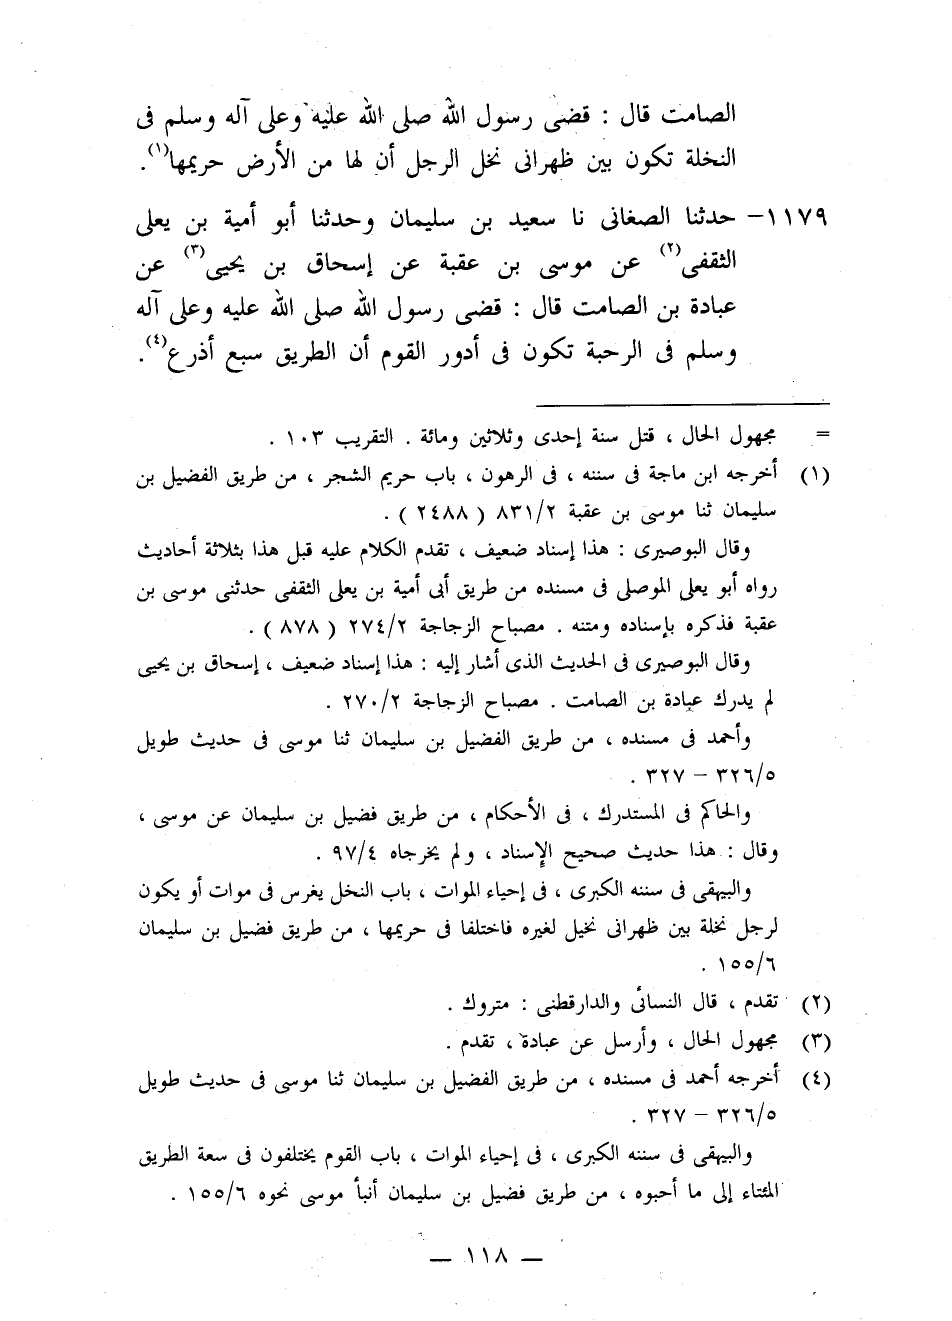 الصامت قال : قضى رسول الله صلى الله عليه وعلى آله وسلم فى
النخلة تكون بين ظهرانى نخل الرجل أن لها من الأرض حريمها(١).
١١٧٩– حدثنا الصغانى نا سعيد بن سليمان وحدثنا أبو أمية بن يعلى
الثقفى(٢) عن موسى بن عقبة عن إسحاق بن يحيى(٣) عن
عبادة بن الصامت قال : قضى رسول الله صلى الله عليه وعلى آله
وسلم فى الرحبة تكون فى أدور القوم أن الطريق سبع أذرع(٤).
= مجهول الحال ، قتل سنة إحدى وثلاثين ومائة . التقريب ١٠٣ .
(١) أخرجه ابن ماجة فى سننه ، فى الرهون ، باب حريم الشجر ، من طريق الفضيل بن
سليمان ثنا موسى بن عقبة ٨٣١/٢ ( ٢٤٨٨ ) .
وقال البوصيرى : هذا إسناد ضعيف ، تقدم الكلام عليه قبل هذا بثلاثة أحاديث
رواه أبو يعلى الموصلى فى مسنده من طريق أبى أمية بن يعلى الثقفى حدثنى موسى بن
عقبة فذكره بإسناده ومتنه . مصباح الزجاجة ٢٧٤/٢ ( ٨٧٨ ) .
وقال البوصيرى فى الحديث الذى أشار إليه : هذا إسناد ضعيف ، إسحاق بن يحيى
لم يدرك عبادة بن الصامت . مصباح الزجاجة ٢٧٠/٢ .
وأحمد فى مسنده ، من طريق الفضيل بن سليمان ثنا موسى فى حديث طويل
٣٢٦/٥ – ٣٢٧ .
والحاكم فى المستدرك ، فى الأحكام ، من طريق فضيل بن سليمان عن موسى ،
وقال : هذا حديث صحيح الإسناد ، ولم يخرجاه ٩٧/٤ .
والبيهقى فى سننه الكبرى ، فى إحياء الموات ، باب النخل يغرس فى موات أو يكون
لرجل نخلة بين ظهرانى نخيل لغيره فاختلفا فى حريمها ، من طريق فضيل بن سليمان
١٥٥/٦ .
(٢) تقدم ، قال النسائى والدارقطنى : متروك .
(٣) مجهول الحال ، وأرسل عن عبادة ، تقدم .
(٤) أخرجه أحمد فى مسنده ، من طريق الفضيل بن سليمان ثنا موسى فى حديث طويل
٣٢٦/٥ – ٣٢٧ .
والبيهقى فى سننه الكبرى ، فى إحياء الموات ، باب القوم يختلفون فى سعة الطريق
المئتاء إلى ما أحبوه ، من طريق فضيل بن سليمان أنبأ موسى نحوه ١٥٥/٦ .
— ١١٨ —